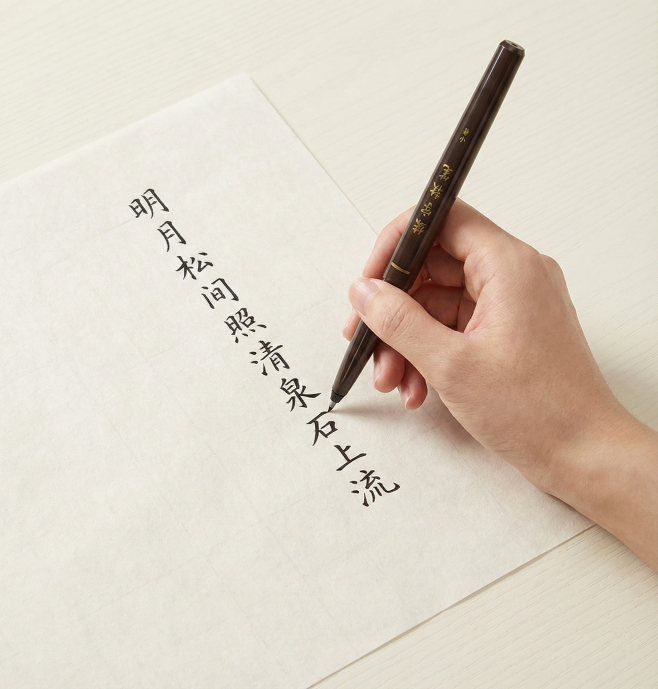 明月松间照清泉石上流